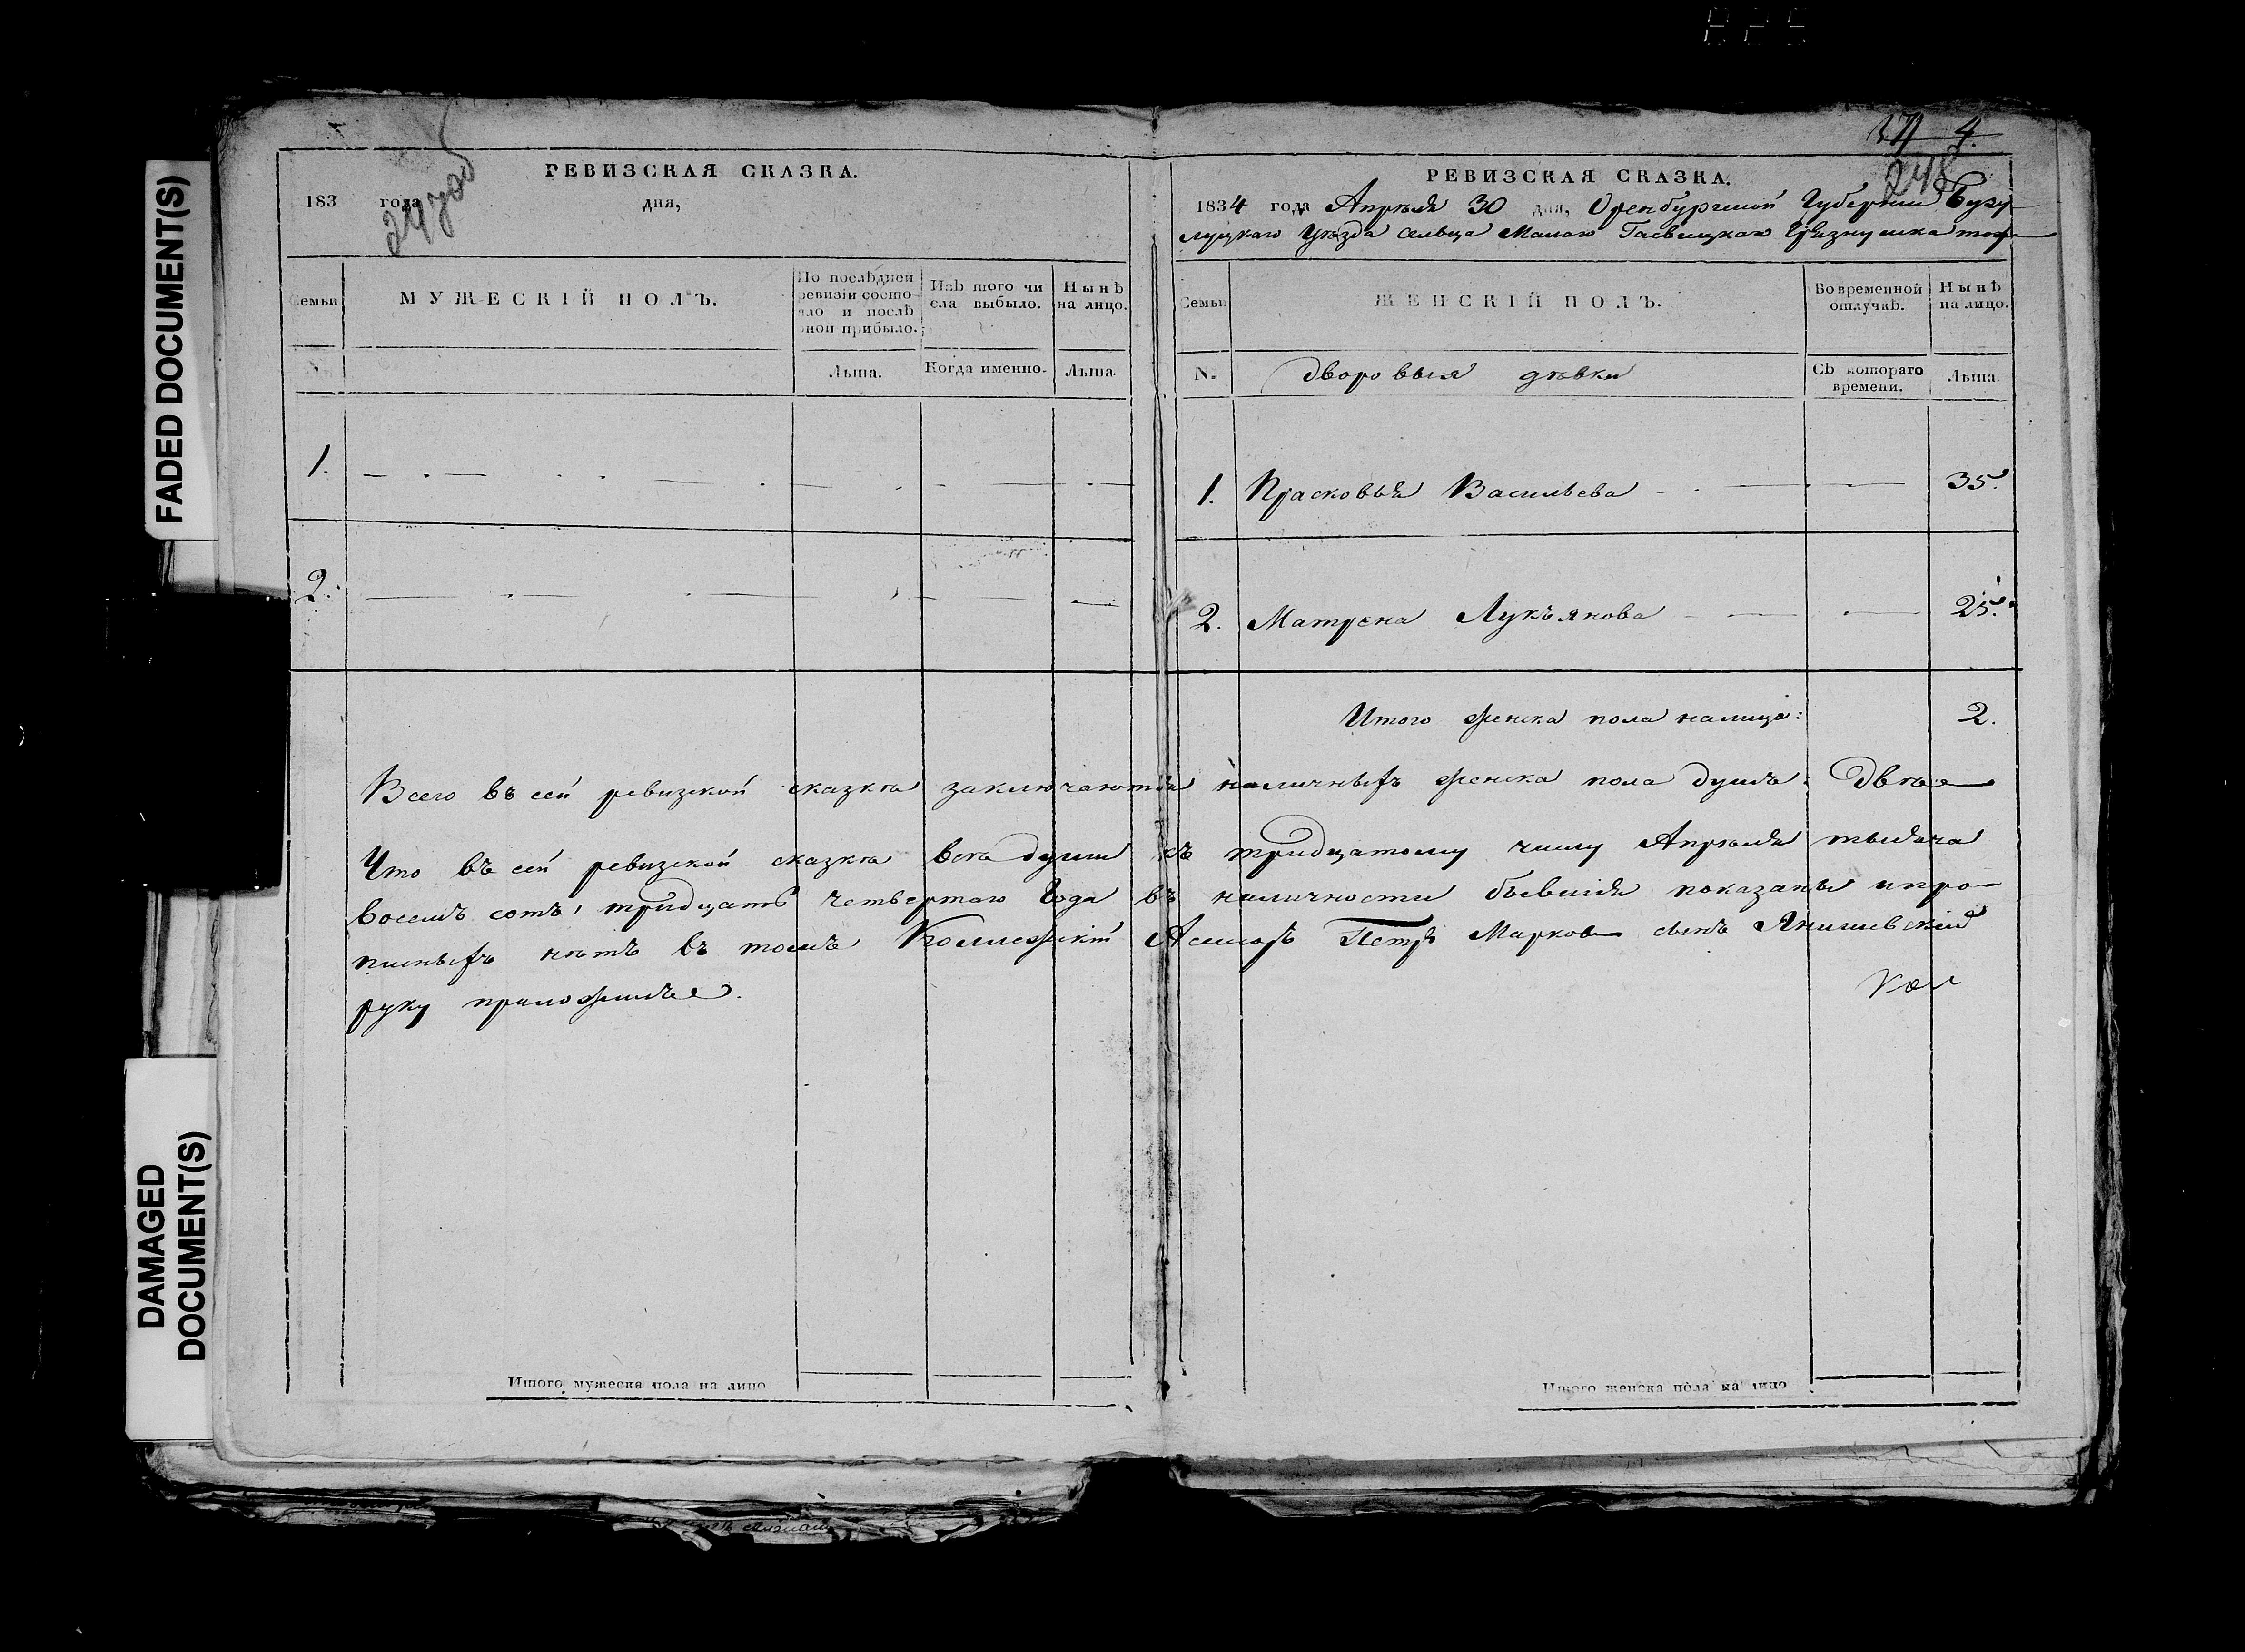 FADED DOCUMENT(S)
DAMAGED
DOCUMENT(S)
247 об
РЕВИЗСКАЯ СКАЗКА.
183 года дня,
Семьи
МУЖЕСКІЙ ПОЛЪ.
По послѣдней
ревизіи состо-
яло и послѣ
оной прибыло.
Изъ того чи
сла выбыло.
Нынѣ
на лицо.
Лѣта.
Когда именно.
Лѣта.
1.
2.
4.
248
РЕВИЗСКАЯ СКАЗКА.
1834 года Апрѣля 30 дня, Оренбургской Губернии Бузу
луцкаго Уѣзда сельца Малаго
Семьи
ЖЕНСКІЙ ПОЛЪ.
Во временной
отлучкѣ.
Нынѣ
на лицо.
N.
Дворовыя дѣвки
Съ котораго
времени.
Лѣта.
1. Прасковья Васильева 35.
2. Матрена Лукъянова 25.
Итого женска пола налицо: 2.
Всего въ сей ревизской сказкѣ заключаются наличныхъ женска пола душъ: Двѣ
Что въ сей ревизской сказкѣ всѣ души къ тридцатому числу Апрѣля тысяча
восемъ сотъ тридцать четвертаго Года въ наличности бывшія показаны и про
писныхъ нѣтъ въ томъ Петръ Марковъ сынъ Янишевский
руку приложилъ.
Итого мужеска пола на лицо
Итого женска пола на лицо